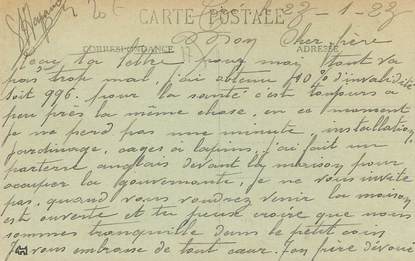 CARTE POSTALE 23-1-22
CORRESPONDANCE ADRESSE
Mon Cher frère
Reçu ta lettre, pour moi, tout va
pas trop mal, j'ai obtenu 40% d'invalidité
soit 996. pour la santé c'est toujours à
peu près la même chose, en ce moment
je ne perd pas une minute, installation,
jardinage, cages à lapins, j'ai fait un
parterre anglais devant la maison pour
occuper la gouvernante, je ne vous invite
pas, quand vous voudrez venir la maison
est ouverte et tu peux croire que nous
sommes tranquille dans le petit coin
Je vous embrasse de tout cœur. Ton frère dévoué